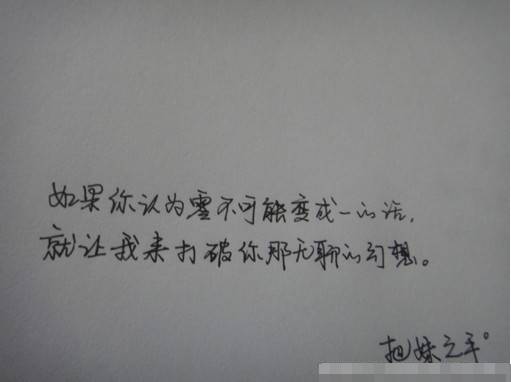 如果你认为零不可能变成一的话，
就让我来打破你那无聊的幻想。
把妹之手。